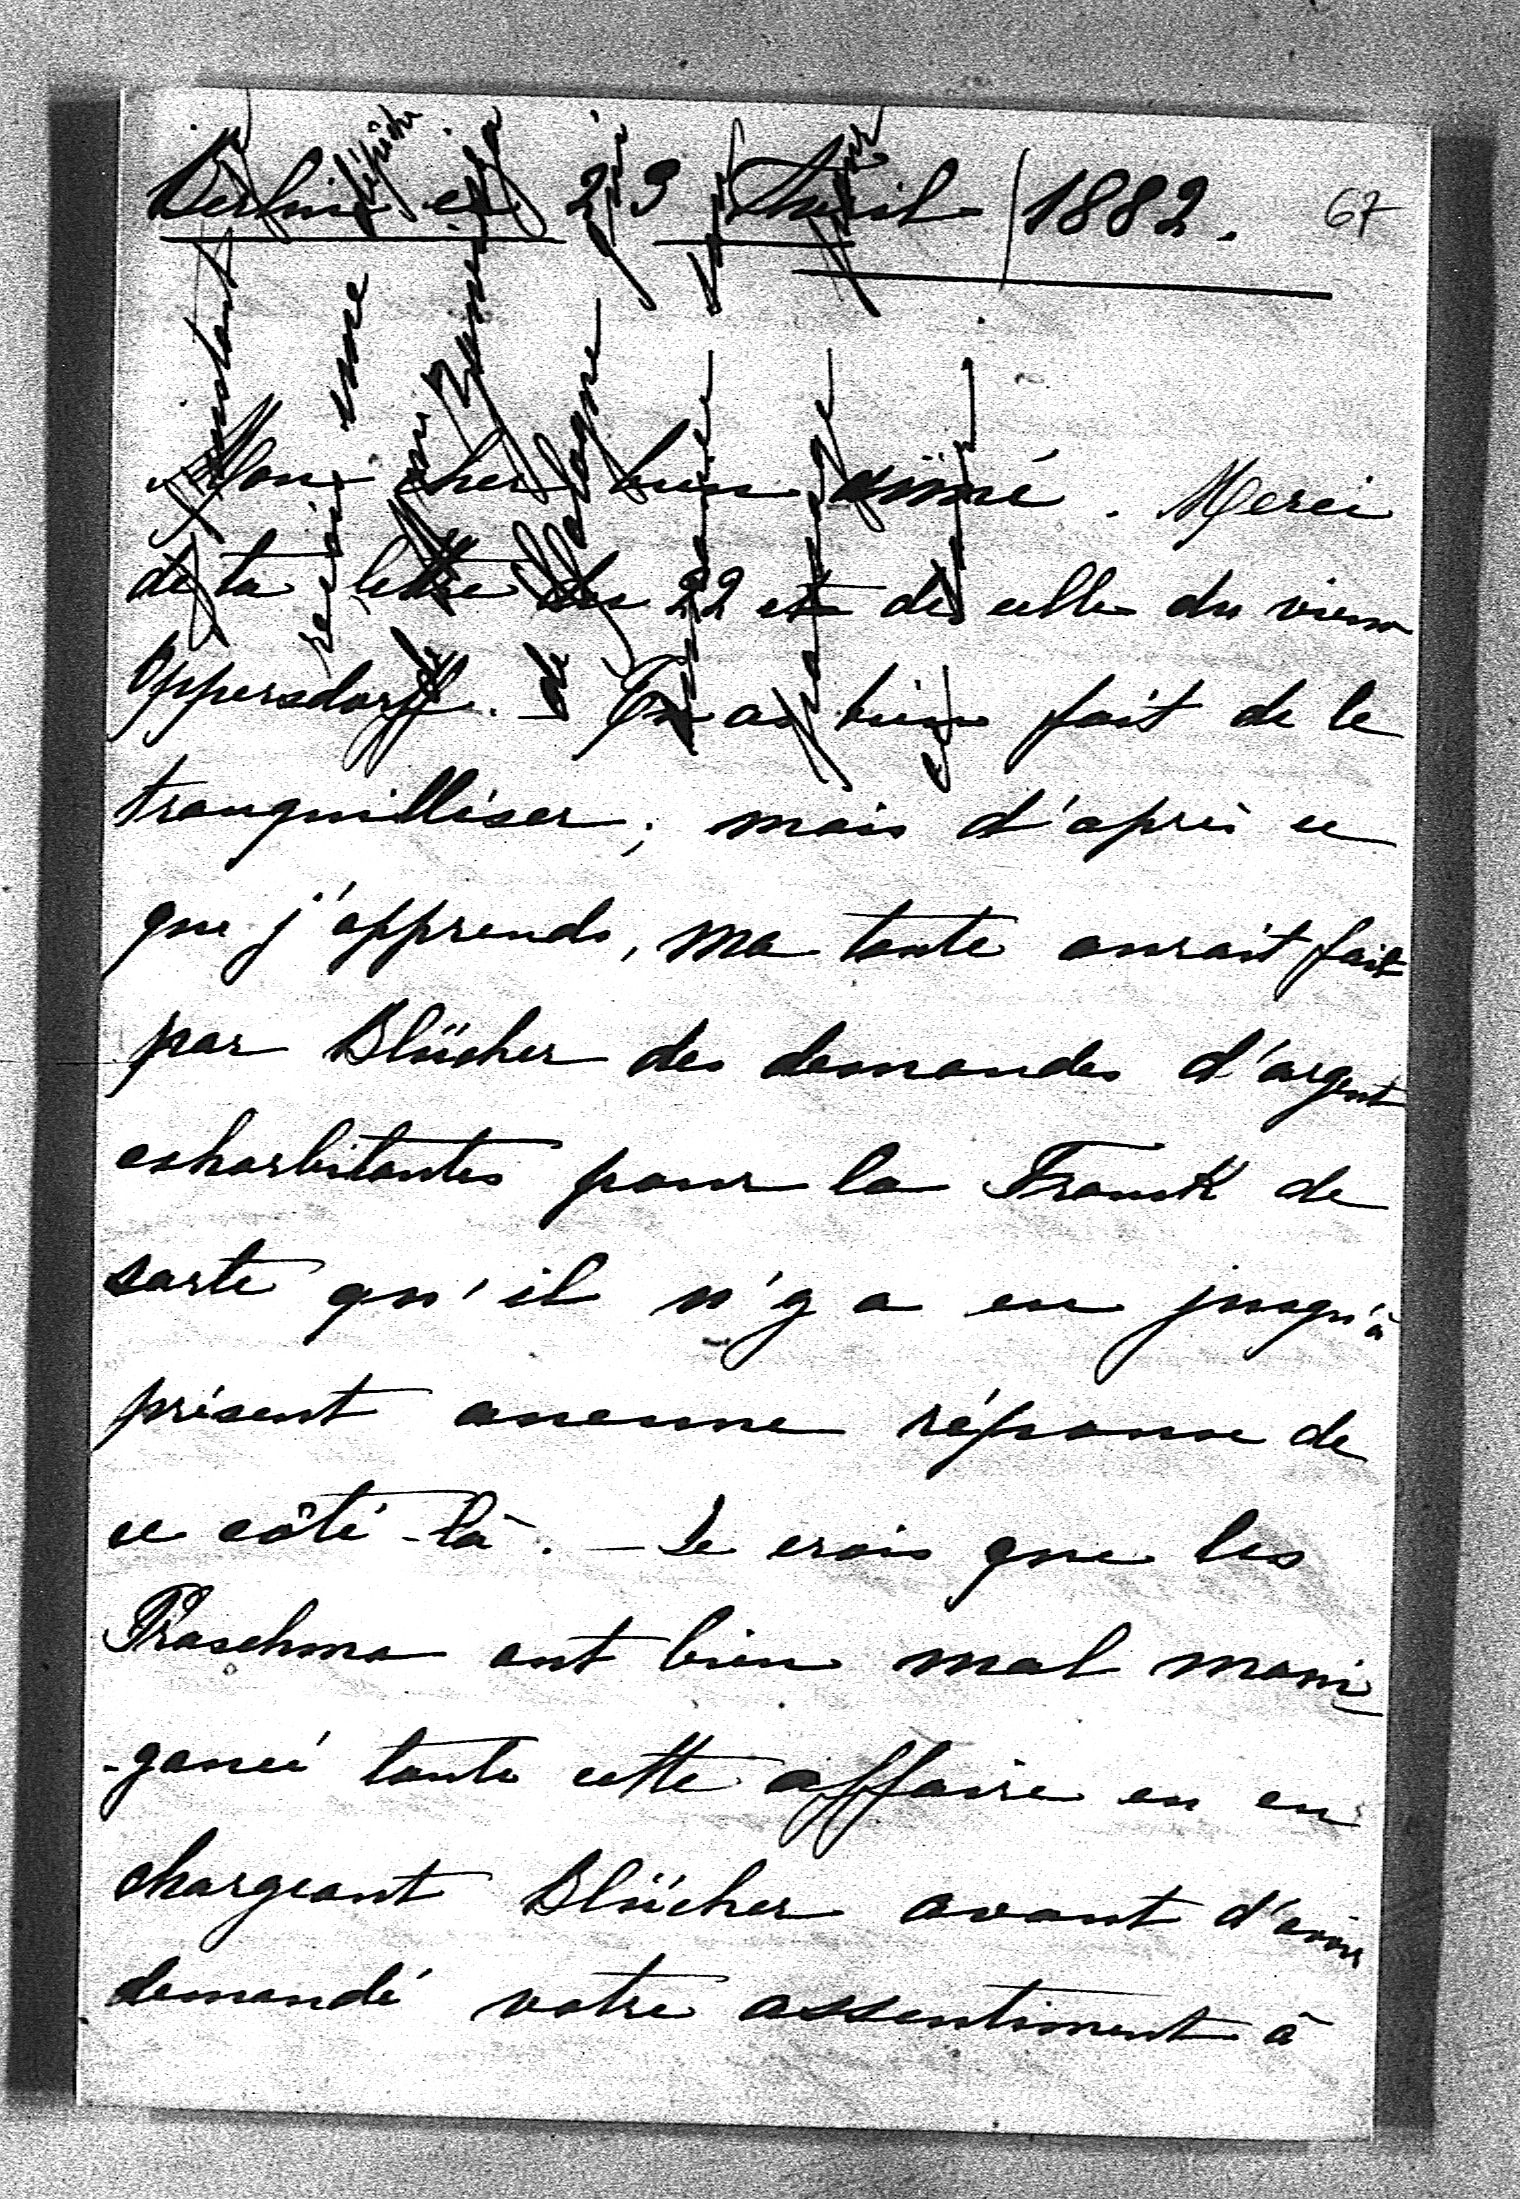 Berlin ce 29 Avril 1882. 67
Mon cher bien aimé. Merci
de ta lettre du 22 et de celle du vieux
Oppersdorff. — Tu as bien fait de le
tranquilliser; mais d'après ce
que j'apprends, ma tante aurait fait
par Blücher des demandes d'argent
exhorbitantes pour la Frank de
sorte qu'il n'y a eu jusqu'à
présent aucune réponse de
ce côté-là. — Je crois que les
Praschma ont bien mal mani
-gancé toute cette affaire en en
chargeant Blücher avant d'avoir
demandé votre assentiment à
instant
reçois une dépêche
de
de